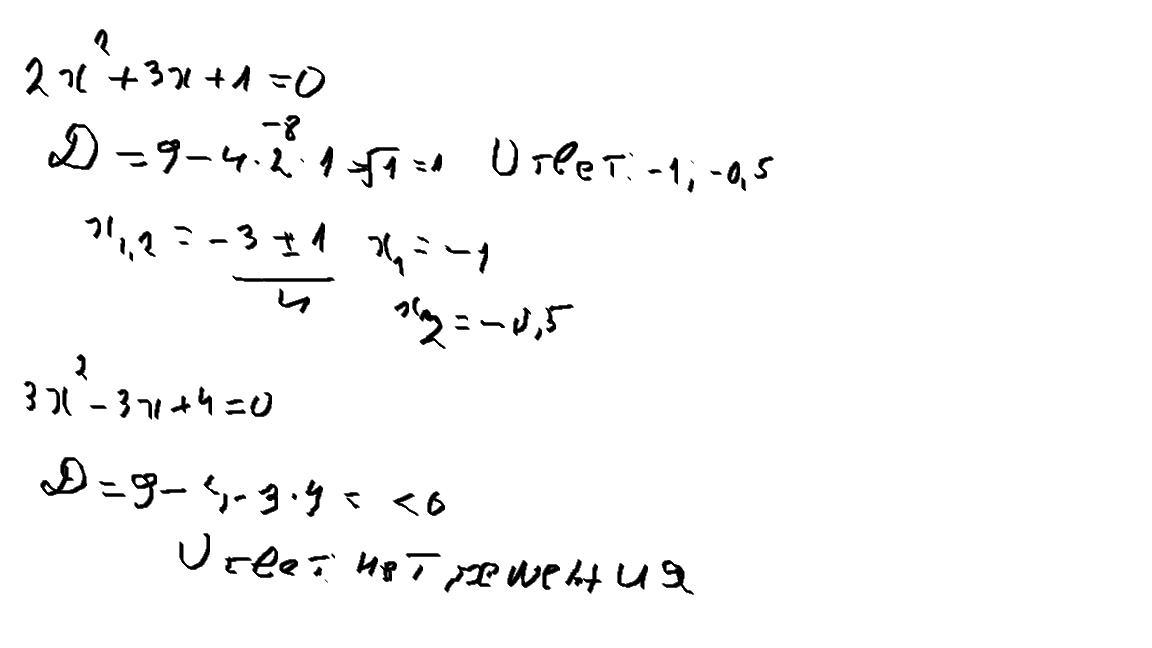 2x² + 3x + 1 = 0
D = 9 - 4 · 2 · 1 = √1 = 1 Ответ: -1; -0,5
-8
x₁,₂ = -3 ± 1 x₁ = -1
4
x₂ = -0,5
3x² - 3x + 4 = 0
D = 9 - 4 · 3 · 4 = < 0
Ответ: нет решения